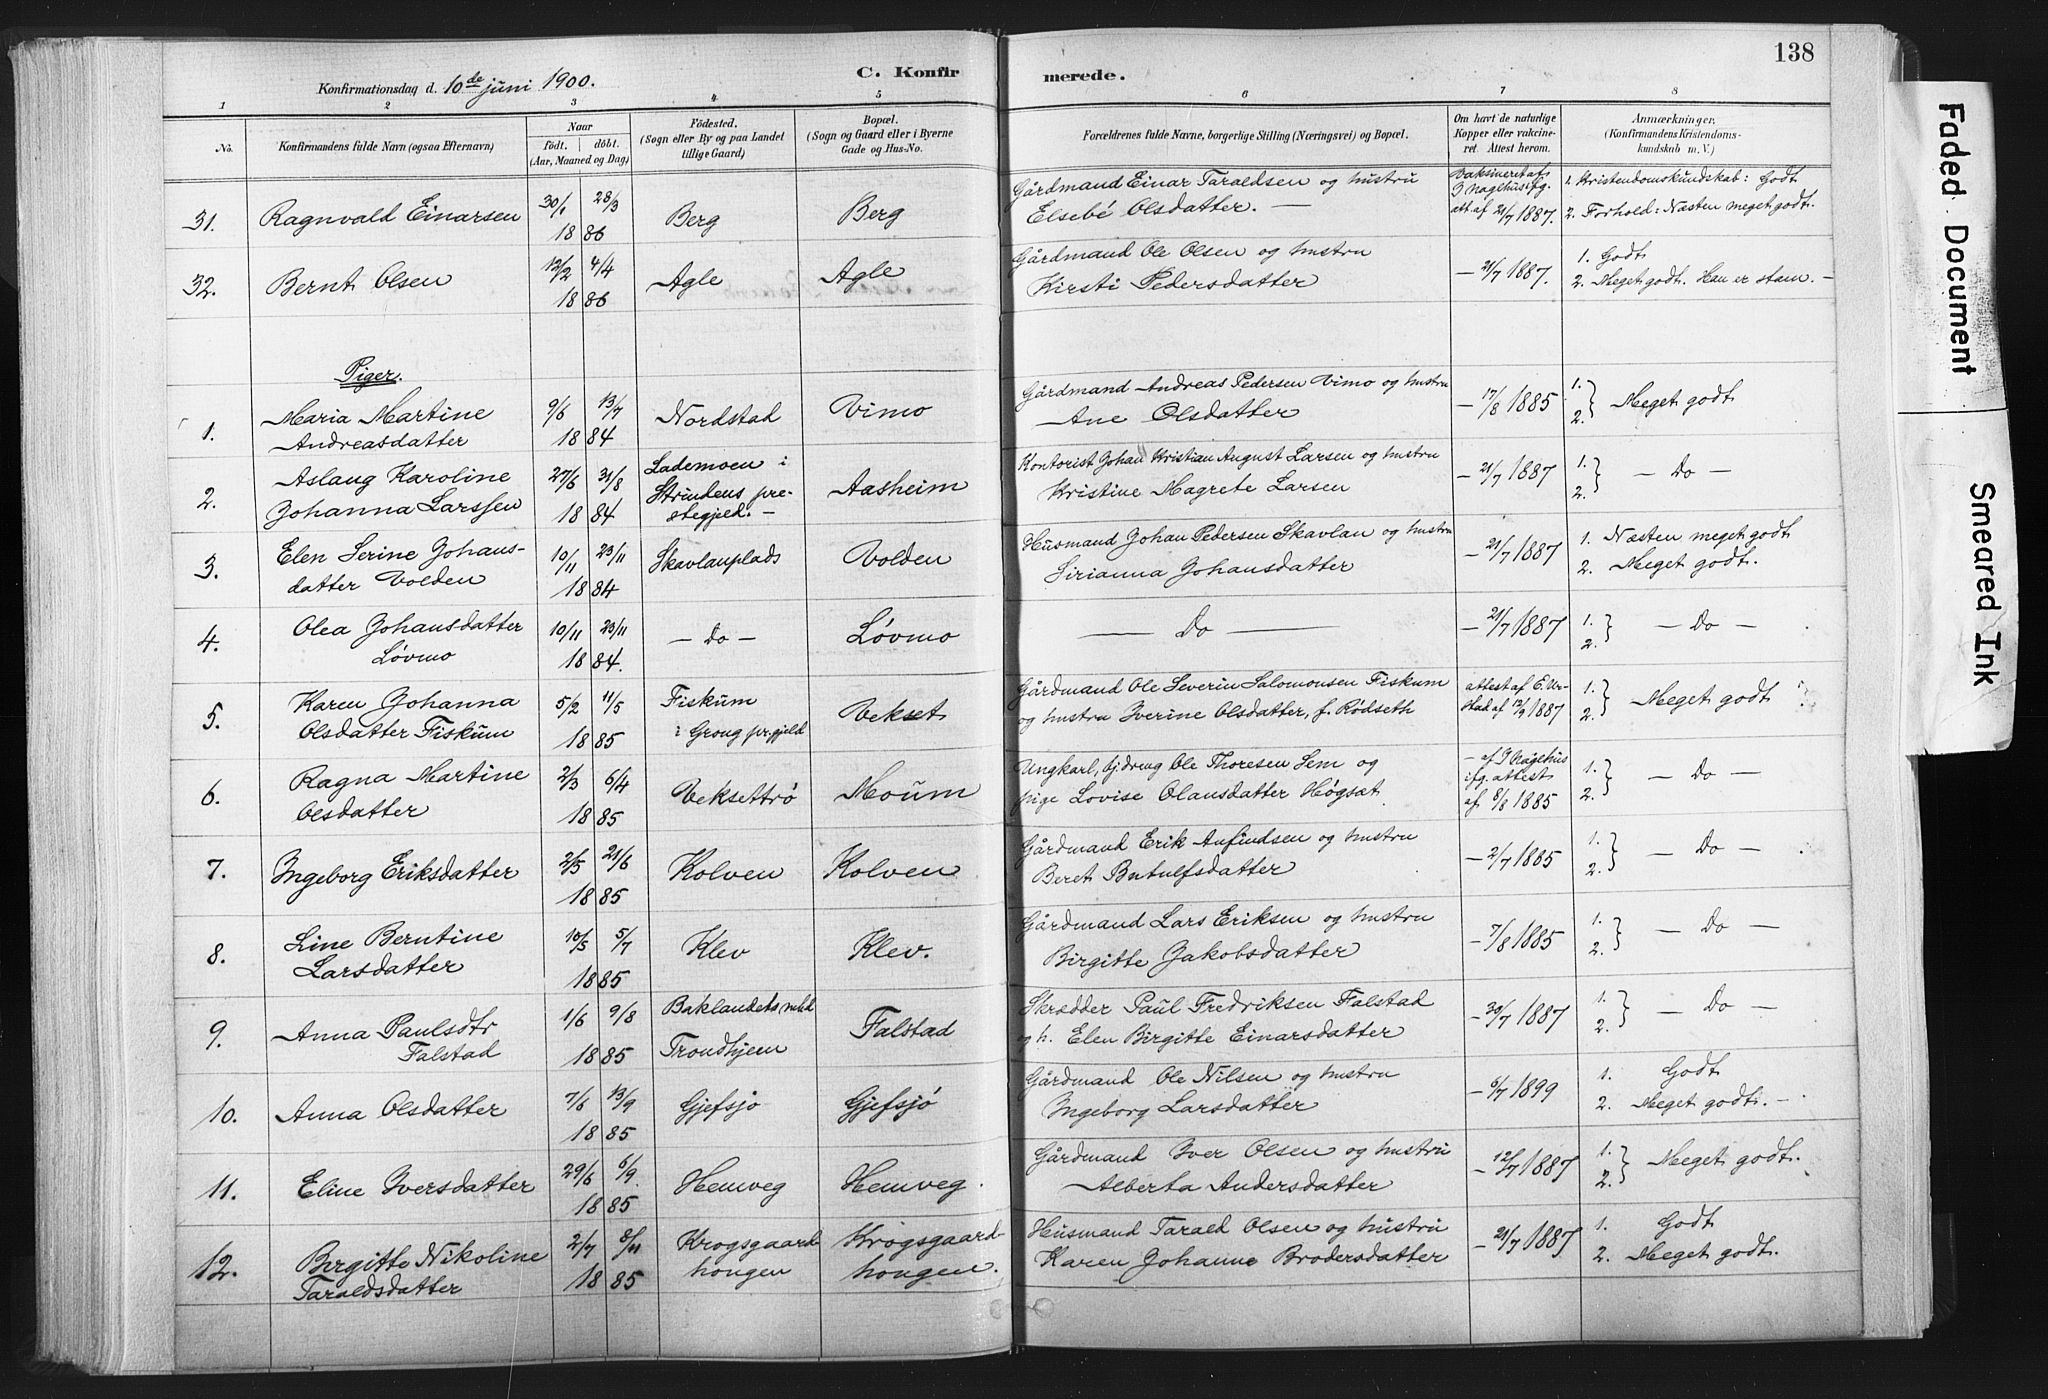 138
Konfirmationsdag d. 10de juni 1900.
C. Konfirmerede.
1 2 3 4 5 6 7 8
No.
Konfirmandens fulde Navn (ogsaa Efternavn)
Naar
födt. döbt.
(Aar, Maaned og Dag)
Födested.
(Sogn eller By og paa Landet
tillige Gaard)
Bopæl.
(Sogn og Gaard eller i Byerne
Gade og Hus-No.
Forældrenes fulde Navne, borgerlige Stilling (Næringsvei) og Bopæl.
Om havt de naturlige
Kopper eller vakcine-
ret. Attest herom.
Anmærkninger.
(Konfirmandens Kristendoms-
kundskab m. V.)
31. Ragnvald Einarsen 30/1 28/3 1886 Berg Berg
Gårdmand Einar Taraldsen og hustru
Elsebé Olsdatter. —
Vaksineret af
I Nagehus ifg.
att. af 21/7 1887.
1. Kristendomskundskab: Godt
2. Forhold: Næsten meget godt.
32. Bernt Olsen 12/2 4/4 1886 Agle Agle
Gårdmand Ole Olsen og hustru
Kirsti Pedersdatter
— 21/7 1887.
1. Godt
2. Meget godt. Han er stam. —
Piger.
1. Maria Martine
Andreasdatter
9/6 13/7 1884 Nordstad Vimo
Gårdmand Andreas Pedersen Vimo og hustru
Ane Olsdatter
— 17/8 1885
1. 2. } Meget godt
2. Aslaug Karoline
Johanna Larssen
27/6 31/8 1884
Lademoen i
Strindens pre-
stegjeld. —
Aasheim
Kontorist Johan Kristian August Larsen og hustru
Kristine Magrete Larsen
— 21/7 1887
1. 2. } — Do —
3. Elen Serine Johans-
datter Volden
10/11 23/11 1884 Skavlanplads Volden
Husmand Johan Pedersen Skavlan og hustru
Sirianna Johansdatter
— 21/7 1887
1. Næsten meget godt
2. Meget godt.
4. Olea Johansdatter
Løvmo
10/11 23/11 1884. — Do — Løvmo
— Do —
— 21/7 1887
1. 2. } — Do —
5. Karen Johanna
Olsdatter Fiskum
5/2 11/5 1885
Fiskum
i Grong pr.gjeld
Vekset
Gårdmand Ole Severin Salomonsen Fiskum
og hustru Iverine Olsdatter, f. Rødseth
attest af
12/9 1887
1. 2. } Meget godt
6. Ragna Martine
Olsdatter
2/3 6/4 1885 Veksettrø Moum
Ungkarl, tj.dreng Ole Thoresen Sem og
pige Lovise Olausdatter Høgsæt
— af I Nagehus
ifg. attest
af 8/8 1885
1. 2. } — Do —
7. Ingeborg Eriksdatter 2/5 21/6 1885 Kolven Kolven
Gårdmand Erik Anfindsen og hustru
Beret Botulfsdatter
— 2/7 1885
1. 2. } — Do —
8. Line Berntine
Larsdatter
10/5 5/7 1885 Klev Klev.
Gårdmand Lars Eriksen og hustru
Birgitte Jakobsdatter
— 7/8 1885
1. 2. } — Do —
9. Anna Paulsdtr
Falstad
1/6 9/8 1885
Baklandets mhd
Trondhjem
Falstad
Skrædder Paul Fredriksen Falstad
og h. Elen Birgitte Einarsdatter
— 30/7 1887
1. 2. } — Do —
10. Anna Olsdatter 7/6 13/9 1885 Gjefsjø Gjefsjø
Gårdmand Ole Nilsen og hustru
Ingeborg Larsdatter
— 6/7 1899
1. Godt
2. Meget godt. —
11. Eline Iversdatter 29/6 6/9. 1885 Hemveg Hemveg.
Gårdmand Iver Olsen og hustru
Alberta Andersdatter
— 12/7 1887
1. 2. } Meget godt.
12. Birgitte Nikoline
Taraldsdatter
2/7 8/11 1885
Krogsgaard
hougen
Krogsgaard-
hougen.
Husmand Tarald Olsen og hustru
Karen Johanne Brodersdatter
— 21/7 1887
1. Godt
2. Meget godt.
Faded Document
Smeared Ink